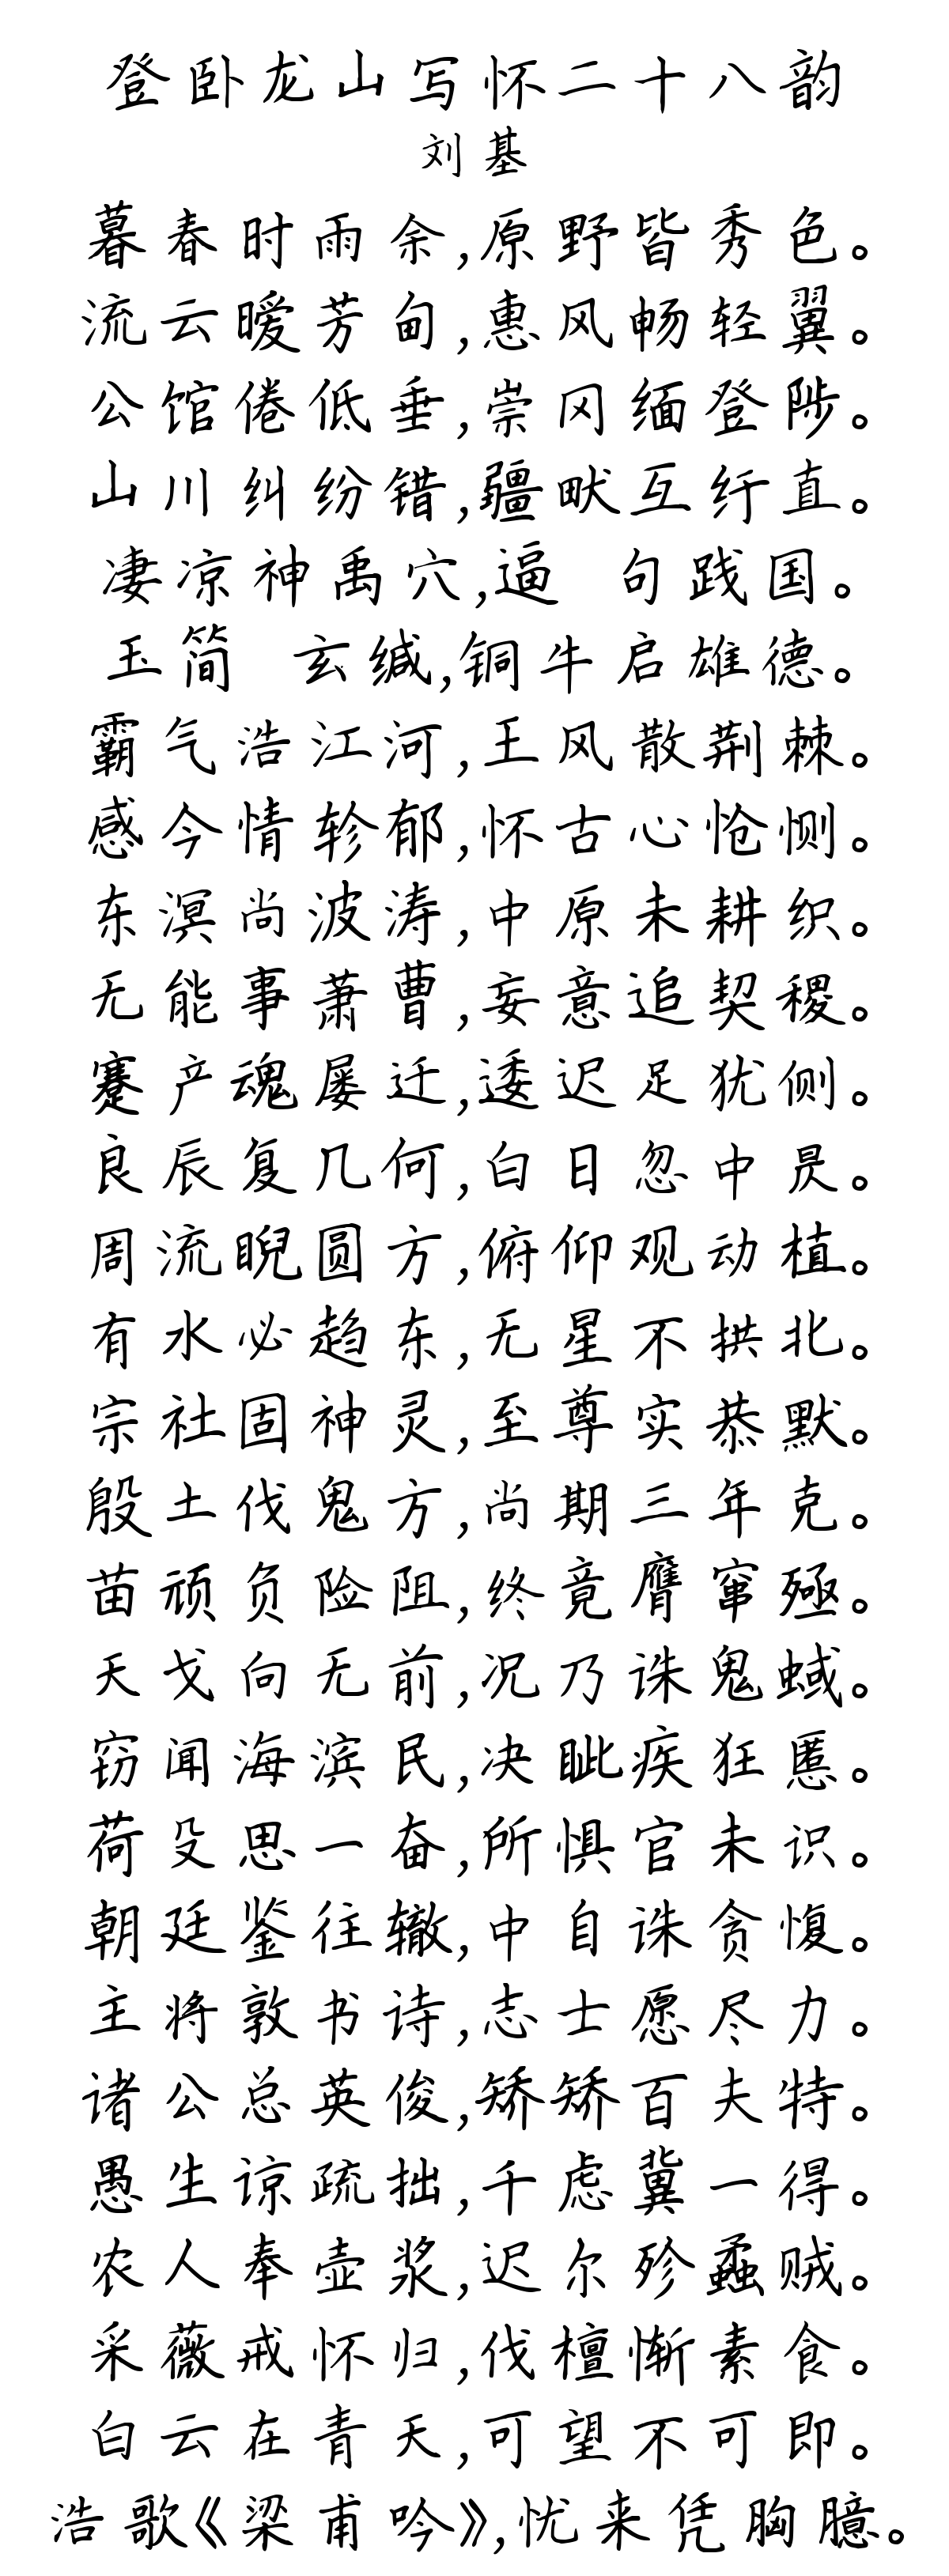 登卧龙山写怀二十八韵
刘基
暮春时雨余,原野皆秀色。
流云暧芳甸,惠风畅轻翼。
公馆倦低垂,崇冈缅登陟。
山川纠纷错,疆畎互纡直。
凄凉神禹穴,逼 句践国。
玉简 玄缄,铜牛启雄德。
霸气浩江河,王风散荆棘。
感今情轸郁,怀古心怆恻。
东溟尚波涛,中原未耕织。
无能事萧曹,妄意追契稷。
蹇产魂屡迁,逶迟足犹侧。
良辰复几何,白日忽中昃。
周流睨圆方,俯仰观动植。
有水必趋东,无星不拱北。
宗社固神灵,至尊实恭默。
殷土伐鬼方,尚期三年克。
苗顽负险阻,终竟膺窜殛。
天戈向无前,况乃诛鬼蜮。
窃闻海滨民,决眦疾狂慝。
荷殳思一奋,所惧官未识。
朝廷鉴往辙,中自诛贪愎。
主将敦书诗,志士愿尽力。
诸公总英俊,矫矫百夫特。
愚生谅疏拙,千虑冀一得。
农人奉壶浆,迟尔殄蟊贼。
采薇戒怀归,伐檀惭素食。
白云在青天,可望不可即。
浩歌《梁甫吟》,忧来凭胸臆。